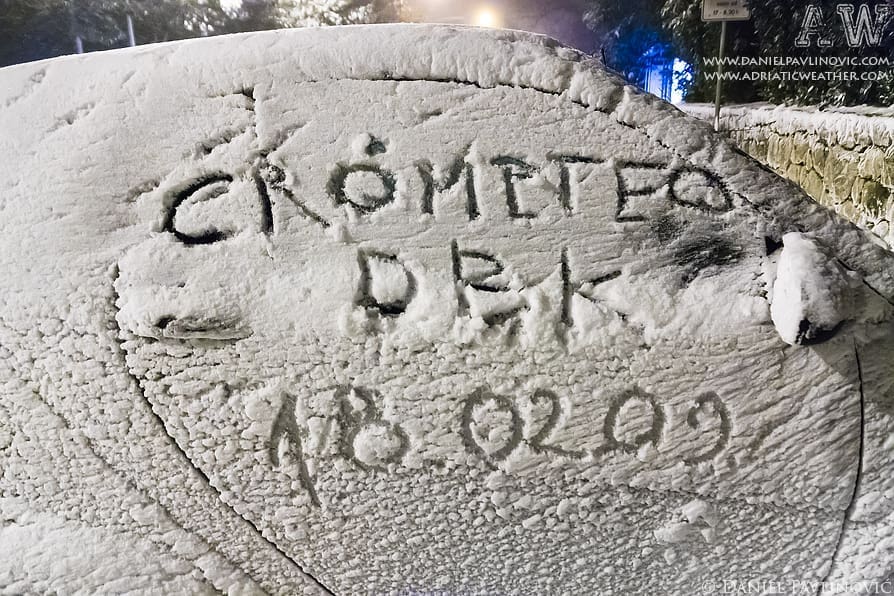 AW
WWW.DANIELPAVLINOVIC.COM
WWW.ADRIATICWEATHER.COM
CRÓMETEO
DBK
18.02.09.
© DANIEL PAVLINOVIC